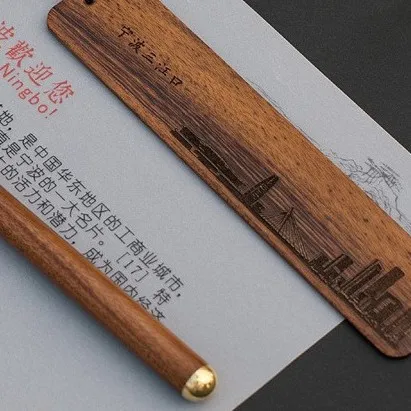 宁波三江口
波歡迎您
Ningbo!
地，是中国华东地区的工商业城市，
是宁波的一大名片。[17] 特
的活力和潜力，成为国内经济